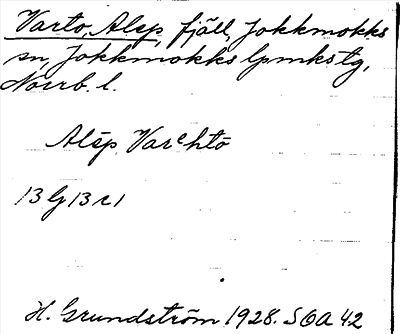 Varto, Alep, fjäll, Jokkmokks
sn, Jokkmokks lpmkstg,
Norrb. l.
Alēp Varᵉhtō
13 G 13 r 1
H. Grundström 1928. SOA 42